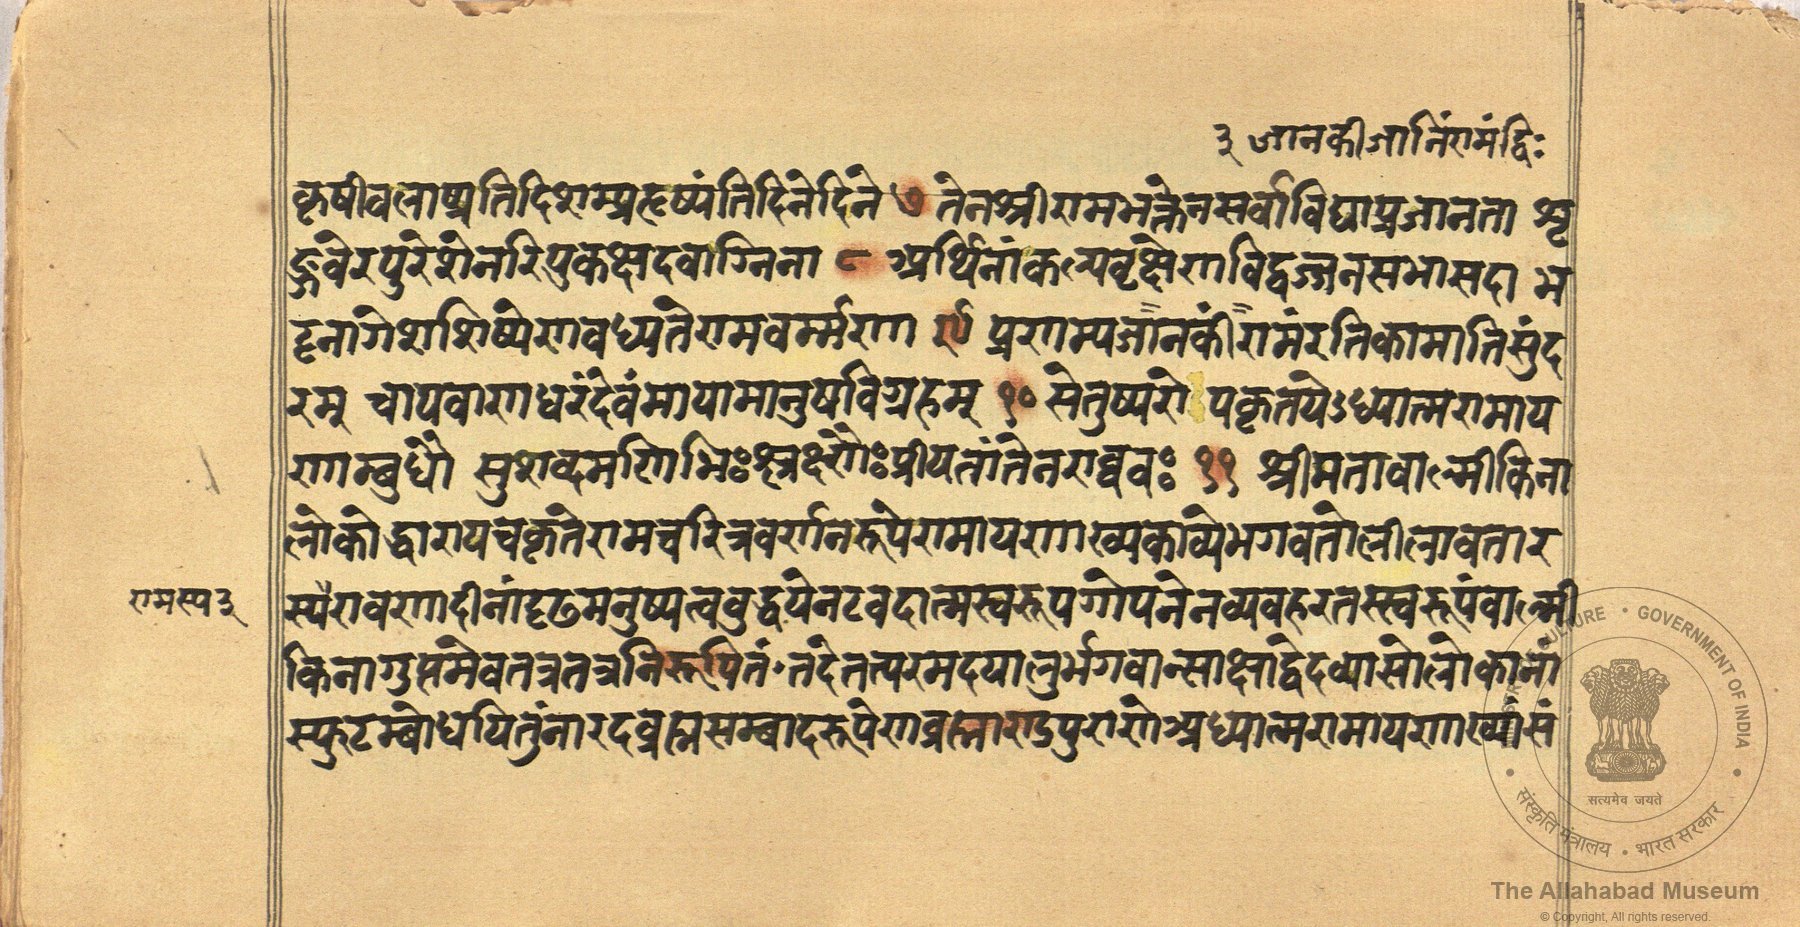 ३ जानकीजानिंरामंद्विः
कृषीवलाष्प्रतिदिशम्प्रहृष्यंतिदिनेदिने ७ तेनश्रीरामभक्तेनसर्वाविद्याप्रजानता शृ
ङ्गवेरपुरेशेनरिपुकक्षदवाग्निना ८ अर्थिनांकल्पवृक्षेणविद्वज्जनसभासदा भ
ट्टनागेशशिष्येणवध्यतेरामवर्म्मणा ९ प्रणम्यजानकींरामंरतिकामातिसुंद
रम् चापबाणधरंदेवंमायामानुषविग्रहम् १० सेतुष्परो पकृतयेऽध्यात्मरामाय
णाम्बुधौ सुशब्दमणिभिःश्लक्ष्णैःप्रीयतांतेनराघवः ११ श्रीमतावाल्मीकिना
लोकोद्धारायचकृतेरामचरित्रवर्णनरूपेरामायणाख्यकाव्येभगवतोलीलावतार
रामस्य३
स्यैरावणादीनांदृढमनुष्यत्वबुद्धयेनटवदात्मस्वरूपगोपनेनव्यवहरतस्स्वरूपंवाल्मी
किनागुप्तमेवतत्रतत्रनिरूपितं तदेतत्परमदयालुर्भगवान्साक्षाद्वेदव्यासोलोकानां
स्फुटम्बोधयितुंनारदब्रह्मसम्बादरूपेणब्रह्माण्डपुराणेअध्यात्मरामायणाख्यांसं
MINISTRY OF CULTURE • GOVERNMENT OF INDIA
सत्यमेव जयते
संस्कृति मंत्रालय • भारत सरकार
The Allahabad Museum
© Copyright, All rights reserved.